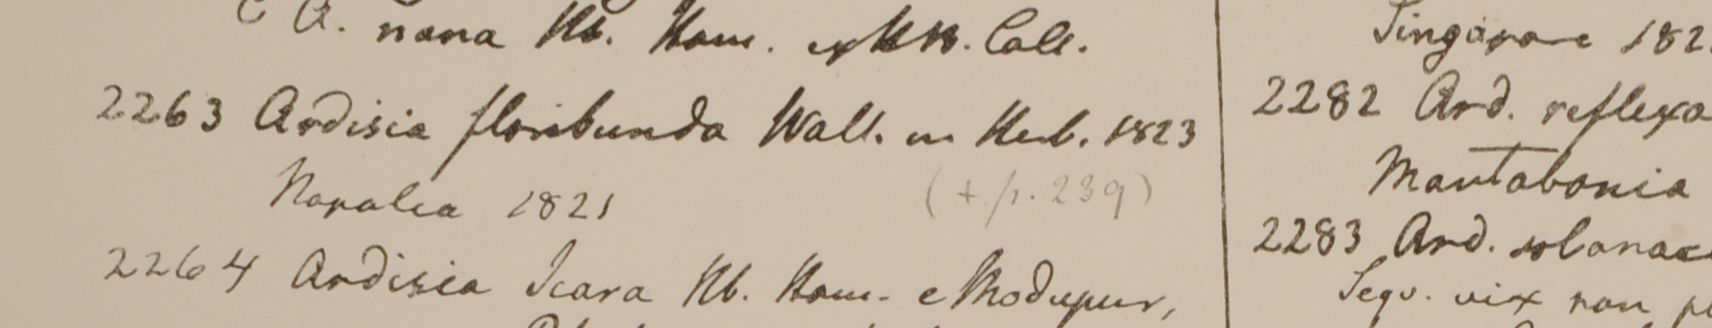 C A. nana Hb. Ham. ex Hb. Coll.
2263 Ardisia floribunda Wall. in Herb. 1823
Napalia 1821 (+ p. 239)
2264 Ardisia Icara Hb. Ham. e Modupur,
Singapore 182
2282 Ard. reflexa
Mautabania
2283 Ard. solanac
Seqv. vix non